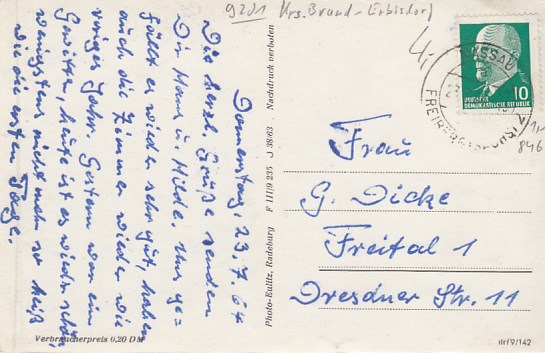 9201 Krs. Brand-Erbisdorf
Donnerstag, 23. 7. 64
Die herzl. Grüße senden
Dir Mann u. Hilde. Uns ge=
fällt es wieder sehr gut, haben
auch die Zimmer wieder wie
voriges Jahr. Gestern war ein
Gewitter, heute ist es wieder schön,
wenigstens nicht mehr so heiß
wie die ersten Tage.
Verbraucherpreis 0,20 DM
Photo-Eulitz, Radeburg F III/9 235 J 38/63 Nachdruck verboten
10
DEUTSCHE
DEMOKRATISCHE REPUBLIK
Frau
G. Dicke
Freital 1
Dresdner Str. 11
846